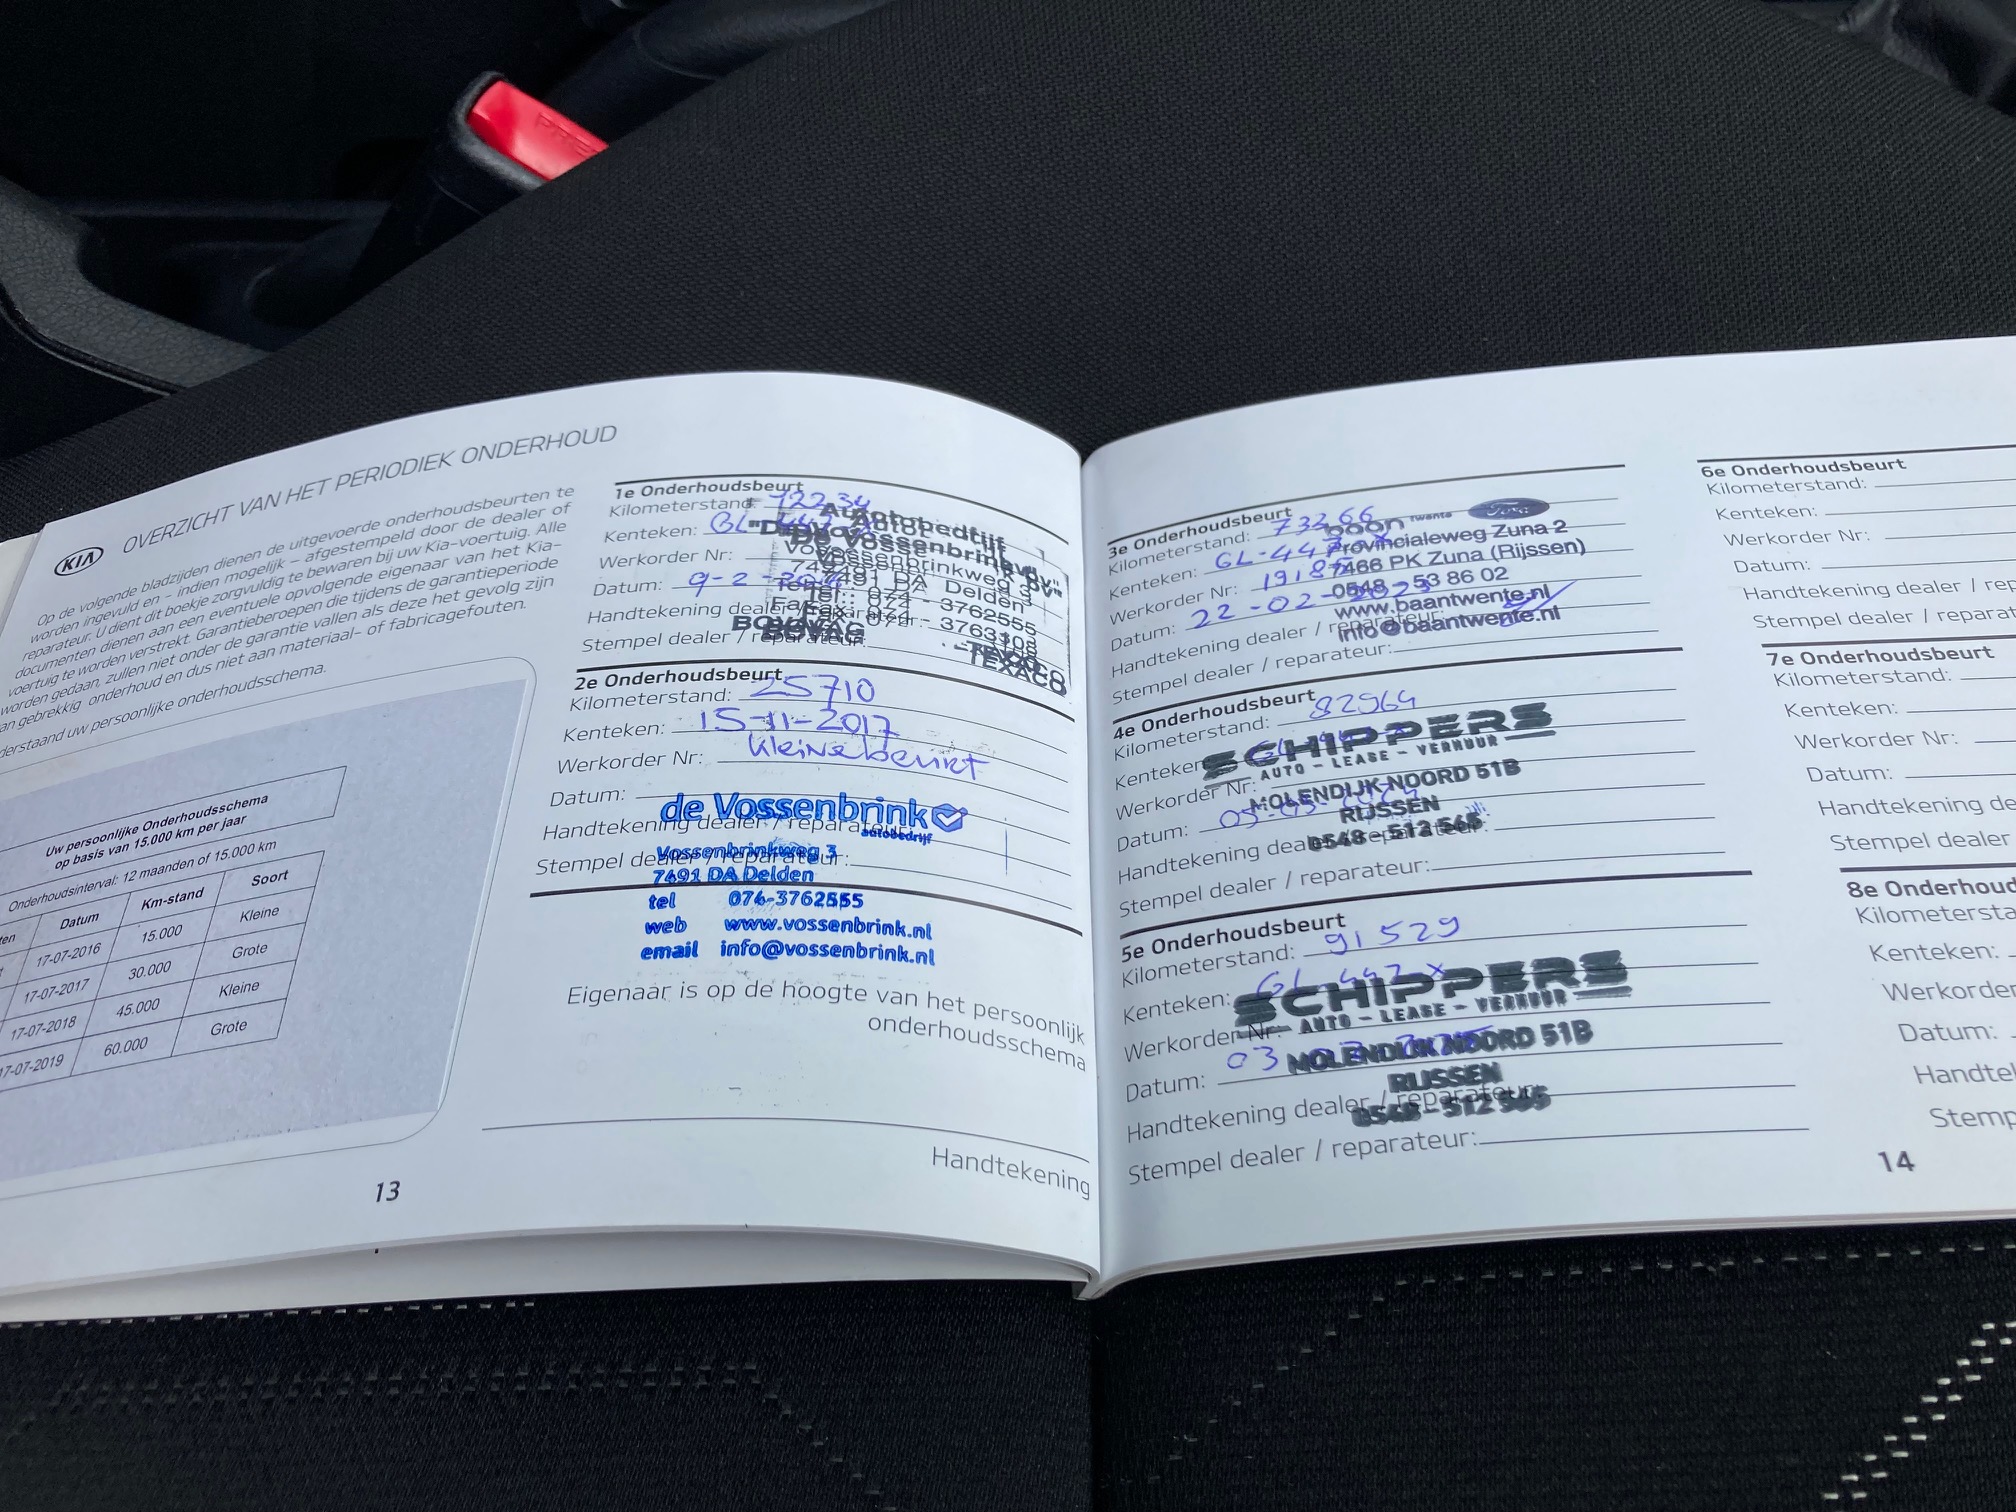 PRESS
KIA
OVERZICHT VAN HET PERIODIEK ONDERHOUD
Op de volgende bladzijden dienen de uitgevoerde onderhoudsbeurten te
worden ingevuld en – indien mogelijk – afgestempeld door de dealer of
reparateur. U dient dit boekje zorgvuldig te bewaren bij uw Kia-voertuig. Alle
documenten dienen aan een eventuele opvolgende eigenaar van het Kia-
voertuig te worden verstrekt. Garantieberoepen die tijdens de garantieperiode
worden gedaan, zullen niet onder de garantie vallen als deze het gevolg zijn
an gebrekkig onderhoud en dus niet aan materiaal- of fabricagefouten.
derstaand uw persoonlijke onderhoudsschema.
Uw persoonlijke Onderhoudsschema
op basis van 15.000 km per jaar
Onderhoudsinterval: 12 maanden of 15.000 km
ten Datum Km-stand Soort
17-07-2016 15.000 Kleine
17-07-2017 30.000 Grote
17-07-2018 45.000 Kleine
17-07-2019 60.000 Grote
13
1e Onderhoudsbeurt
Kilometerstand: 12234
Kenteken: GL-
Werkorder Nr:
Datum: 9-2-
Handtekening dealer / reparateur:
Stempel dealer / reparateur:
Autobedrijf
"De Vossenbrink BV"
Vossenbrinkweg 3
7491 DA Delden
Tel.: 074 - 3762555
Fax: 074 - 3763108
BOVAG
TEXACO
2e Onderhoudsbeurt
Kilometerstand: 25710
Kenteken: 15-11-2017
Werkorder Nr: kleine beurt
Datum:
Handtekening dealer / reparateur:
Stempel dealer / reparateur:
de Vossenbrink
autobedrijf
Vossenbrinkweg 3
7491 DA Delden
tel 074-3762555
web www.vossenbrink.nl
email info@vossenbrink.nl
Eigenaar is op de hoogte van het persoonlijk
onderhoudsschema
Handtekening
3e Onderhoudsbeurt
Kilometerstand: 73266
Kenteken: GL-447-
Werkorder Nr: 1918
Datum: 22-02-
Handtekening dealer / reparateur:
Stempel dealer / reparateur:
Twente
Ford
Provincialeweg Zuna 2
7466 PK Zuna (Rijssen)
0548 - 53 86 02
www.baantwente.nl
info@baantwente.nl
4e Onderhoudsbeurt
Kilometerstand: 82964
Kenteken:
Werkorder Nr:
Datum: 05-
Handtekening dealer / reparateur:
Stempel dealer / reparateur:
SCHIPPERS
AUTO - LEASE - VERHUUR
MOLENDIJK NOORD 51B
RIJSSEN
0548 - 512 565
5e Onderhoudsbeurt
Kilometerstand: 91529
Kenteken: GL-447-X
Werkorder Nr:
Datum: 03
Handtekening dealer / reparateur:
Stempel dealer / reparateur:
SCHIPPERS
AUTO - LEASE - VERHUUR
MOLENDIJK NOORD 51B
RIJSSEN
0548 - 512 565
6e Onderhoudsbeurt
Kilometerstand:
Kenteken:
Werkorder Nr:
Datum:
Handtekening dealer / rep
Stempel dealer / reparat
7e Onderhoudsbeurt
Kilometerstand:
Kenteken:
Werkorder Nr:
Datum:
Handtekening de
Stempel dealer
8e Onderhoud
Kilometersta
Kenteken:
Werkorder
Datum:
Handte
Stemp
14